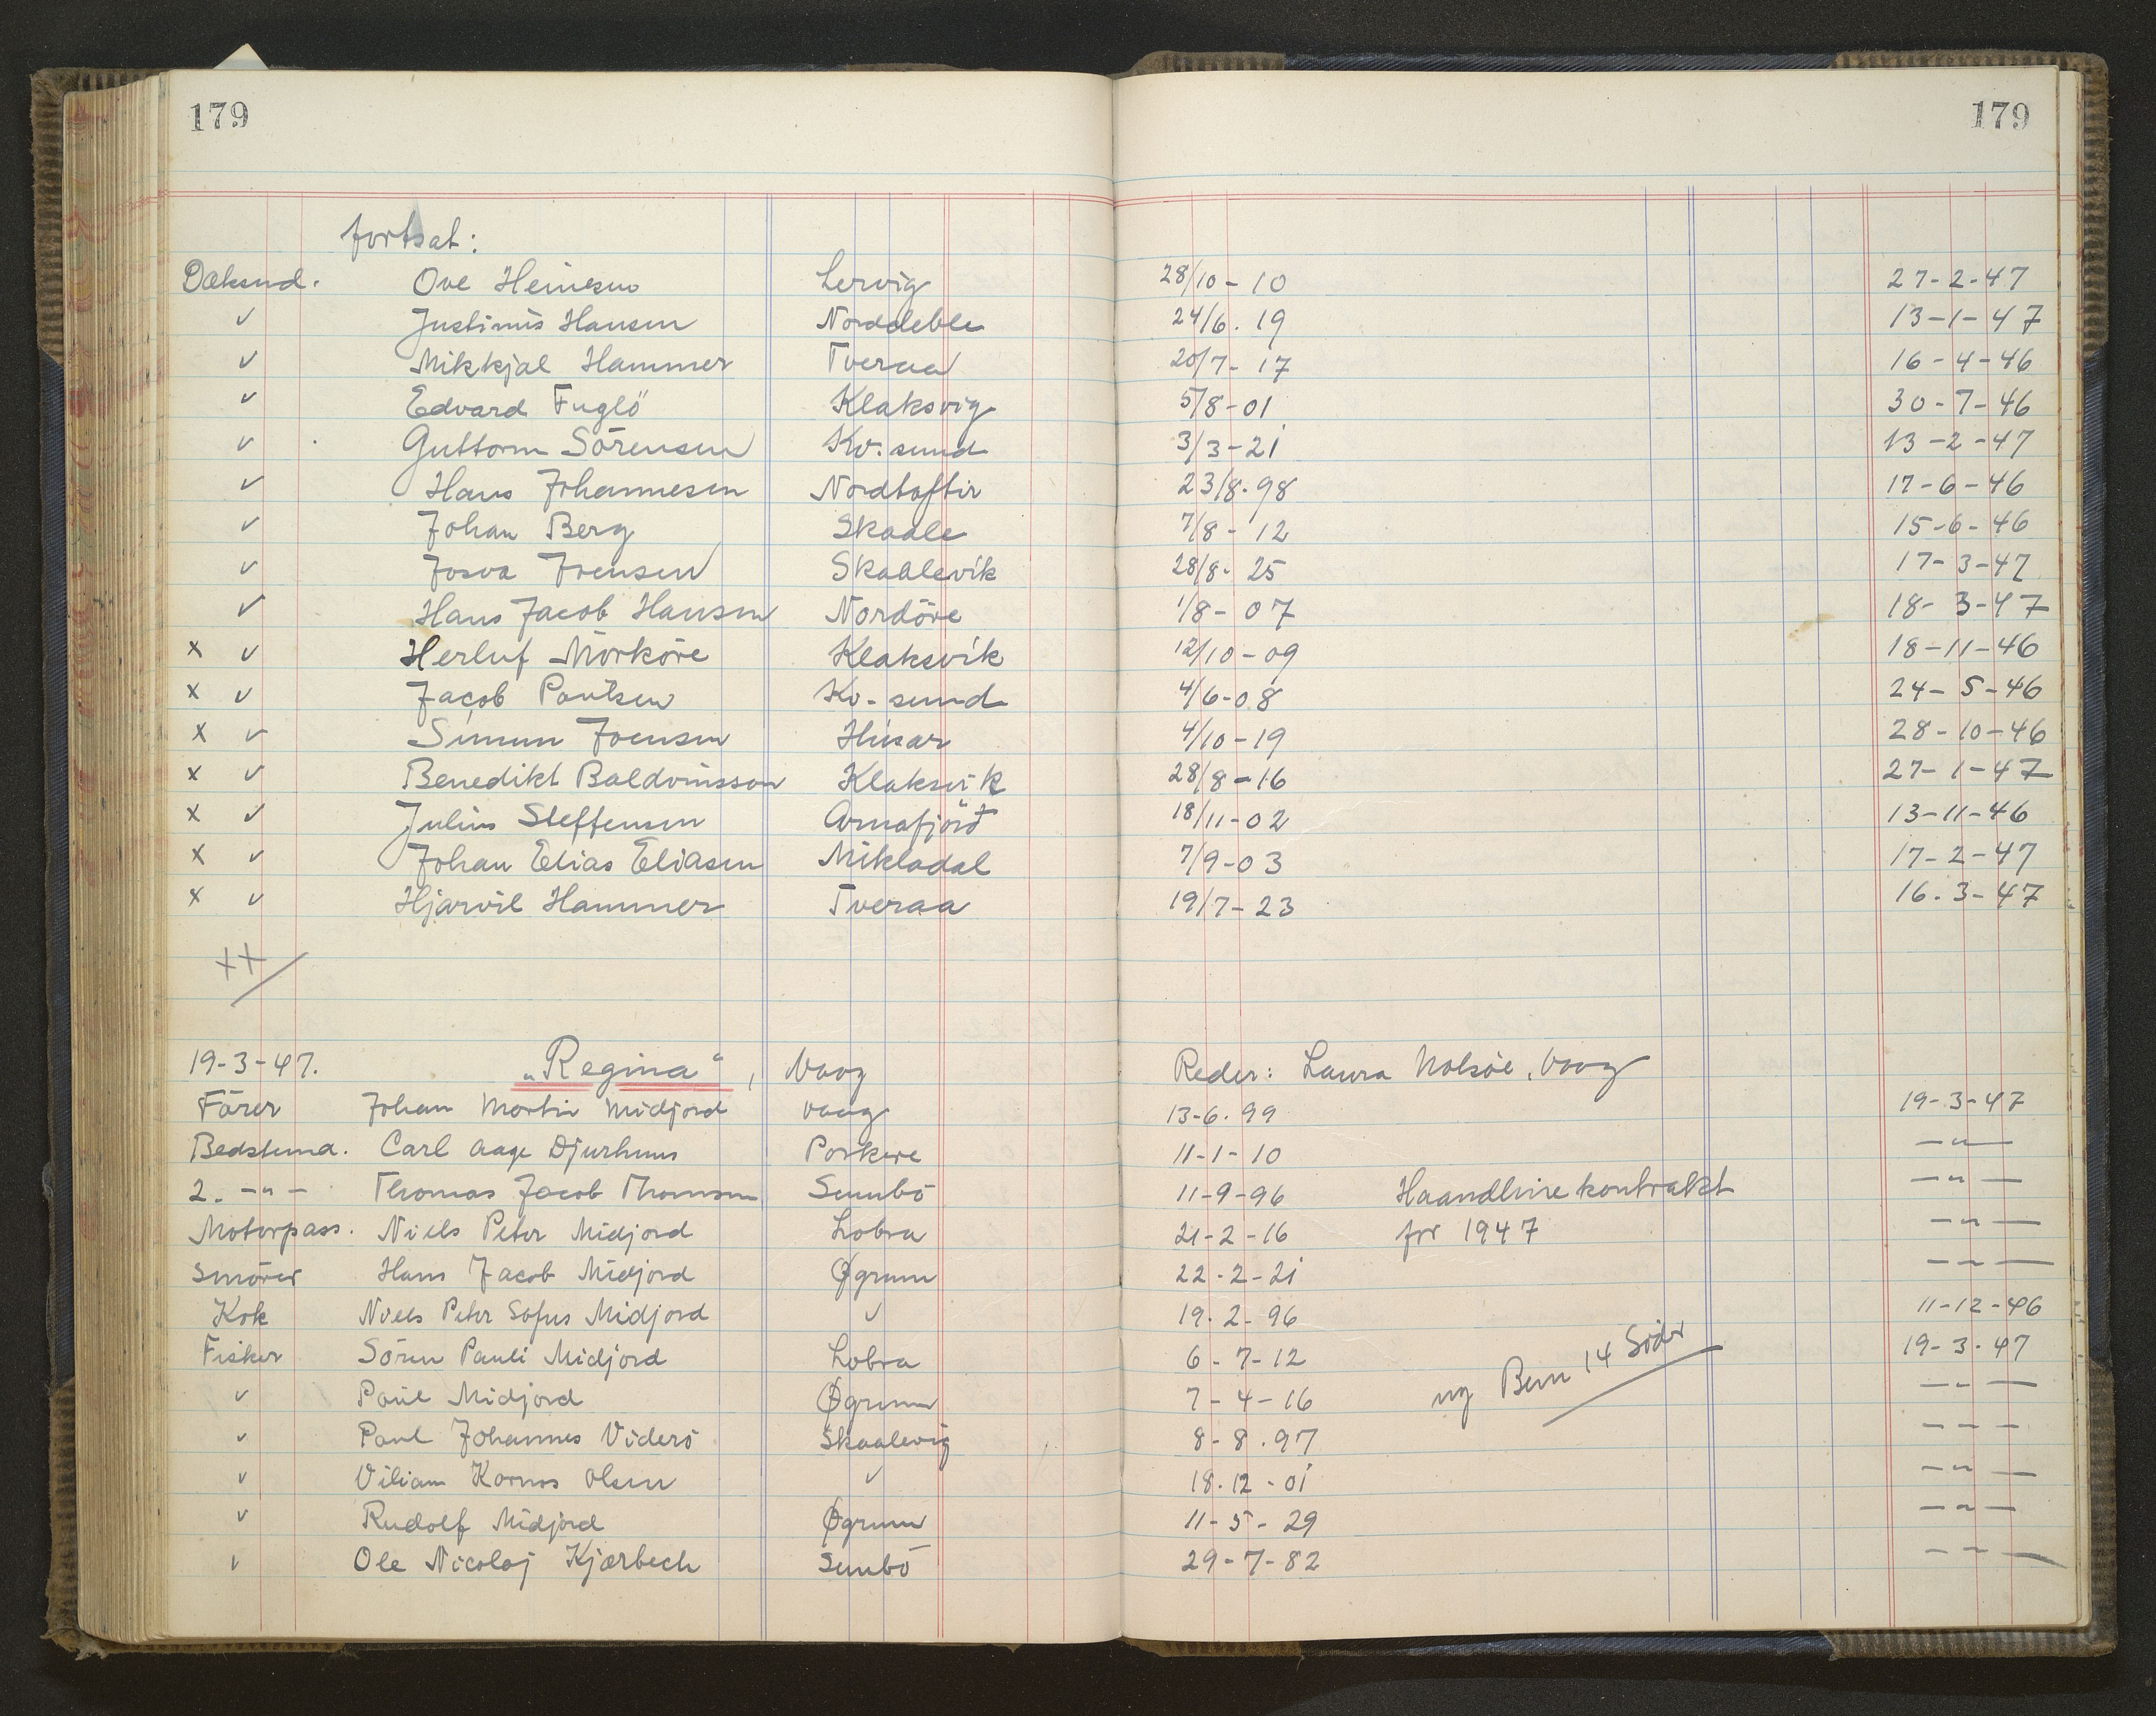 179 179
fortsat:
Dæksmd. Ove Heinesen Lervig 28/10-10 27-2-47
v Justinus Hansen Norddeble 24/6. 19 13-1-47
v Mikkjal Hammer Tveraa 20/7- 17 16-4-46
v Edvard Fuglö Klaksvig 5/8-01 30-7-46
v Guttorm Sörensen Kv. sund 3/3-21 13-2-47
v Hans Johannesen Nordtoftir 23/8.98 17-6-46
v Johan Berg Skaale 7/8- 12 15-6-46
v Josva Joensen Skaalevik 28/8- 25 17-3-47
v Hans Jacob Hansen Nordöre 1/8- 07 18-3-47
x v Herluf Mörköre Klaksvik 12/10-09 18-11-46
x v Jacob Poulsen Kv. sund 4/6-08 24-5-46
x v Simun Joensen Húsar 4/10-19 28-10-46
x v Benedikt Baldvinsson Klaksvik 28/8-16 27-1-47
x v Julius Steffensen Arnafjörd 18/11-02 13-11-46
x v Johan Elias Eliasen Mikladal 7/9-03 17-2-47
x v Hjarvil Hammer Tveraa 19/7-23 16.3-47
++
19-3-47. „Regina“, Vaag Reder: Laura Nolsöe, Vaag
Förer Johan Martin Midjord Vaag 13-6.99 19-3-47
Bedstemd. Carl Aage Djurhuus Porkere 11-1-10 —"—
2. -"- Thomas Jacob Thomsen Sumbö 11-9-96 Haandlinekontrakt —"—
Motorpass. Niels Peter Midjord Lobra 21-2-16 for 1947 —"—
Smörer Hans Jacob Midjord Øgrum 22-2-21 —"—
Kok Niels Peter Sofus Midjord v 19.2-96 11-12-46
Fisker Sören Pauli Midjord Lobra 6-7-12 14 19-3-47
v Poul Midjord Øgrum 7-4-16 —"—
v Poul Johannes Viderö Skaalevig 8-8.97 ---
v Viliam Kornus Olsen v 18.12-01 —"—
v Rudolf Midjord Øgrum 11-5-29 —"—
v Ole Nicolaj Kjærbech Sumbö 29-7-82 —"—